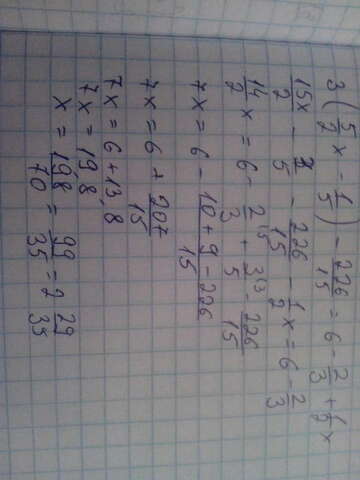 3(5/2 x - 1/5) - 226/15 = 6 - 2/3 + 1/2 x
15x/2 - 3/5 - 226/15 - 1/2 x = 6 - 2/3
14/2 x = 6 - 2/3 ⁽⁵ + 3/5 ⁽³ - 226/15
7x = 6 - 10+9-226/15
7x = 6 + 207/15
7x = 6 + 13,8
7x = 19,8
x = 198/70 = 99/35 = 2 29/35